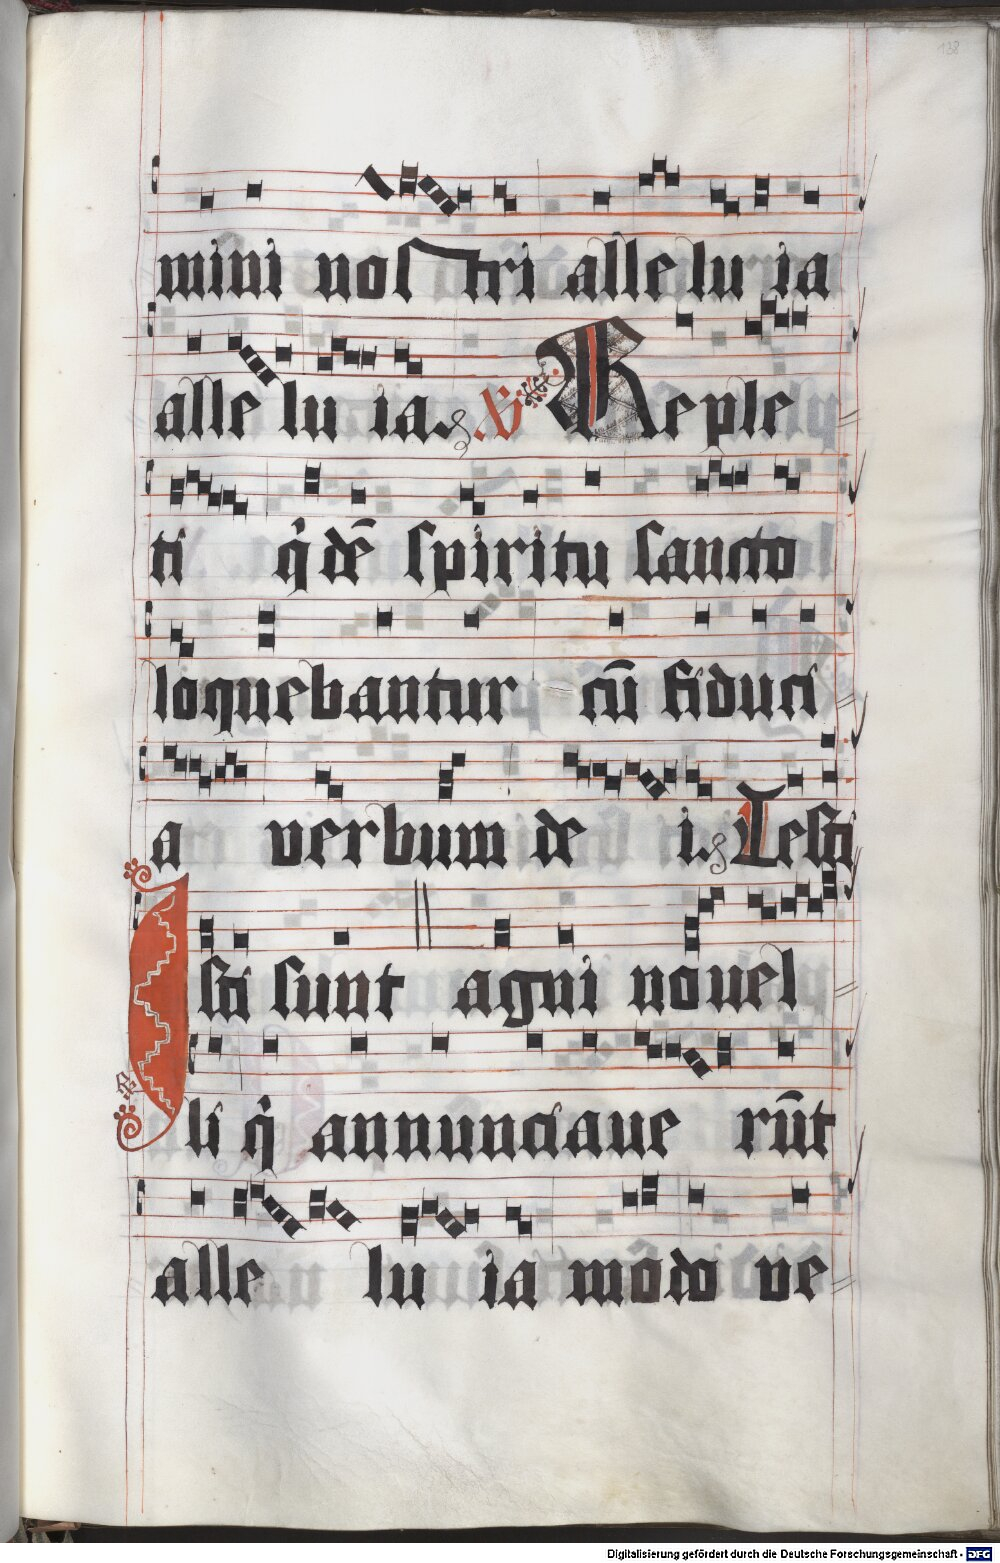 138
mini nostri alleluia
alleluia. ℣ Reple
ti q̇dē spiritu sancto
loquebantur cū fiduci
a verbum dei. Testi
Isti sunt agni novel
li q̇ annunciaue rūt
alleluia modo ve
Digitalisierung gefördert durch die Deutsche Forschungsgemeinschaft - DFG